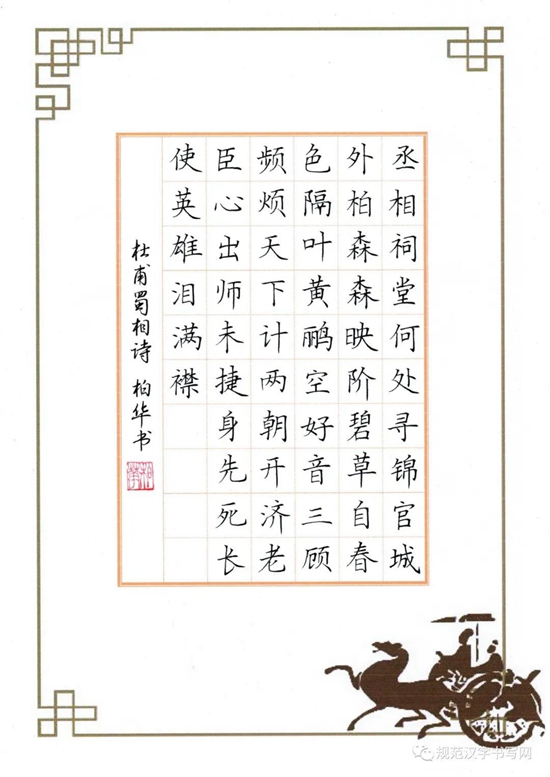 丞相祠堂何处寻锦官城
外柏森森映阶碧草自春
色隔叶黄鹂空好音三顾
频烦天下计两朝开济老
臣心出师未捷身先死长
使英雄泪满襟
杜甫蜀相诗 柏华书
规范汉字书写网